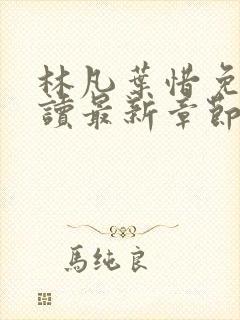 林凡葉惜免
讀最新章節
馬純良